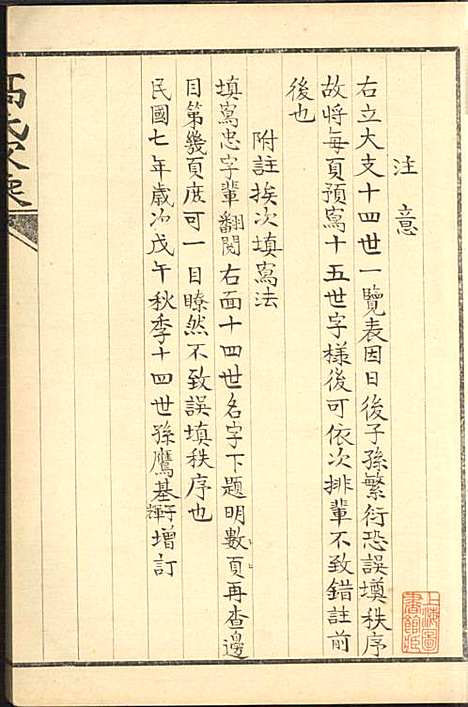 注意
右立大支十四世一覽表因日後子孫繁衍恐誤填秩序
故將每頁預寫十五世字樣後可依次排輩不致錯註前
後也
附註挨次填寫法
填寫忠字輩翻閱右面十四世名字下題明數頁再查邊
目第幾頁庶可一目瞭然不致誤填秩序也
民國七年歲次戊午秋季十四世孫鷹基軒輝增訂
上海圖
書館藏